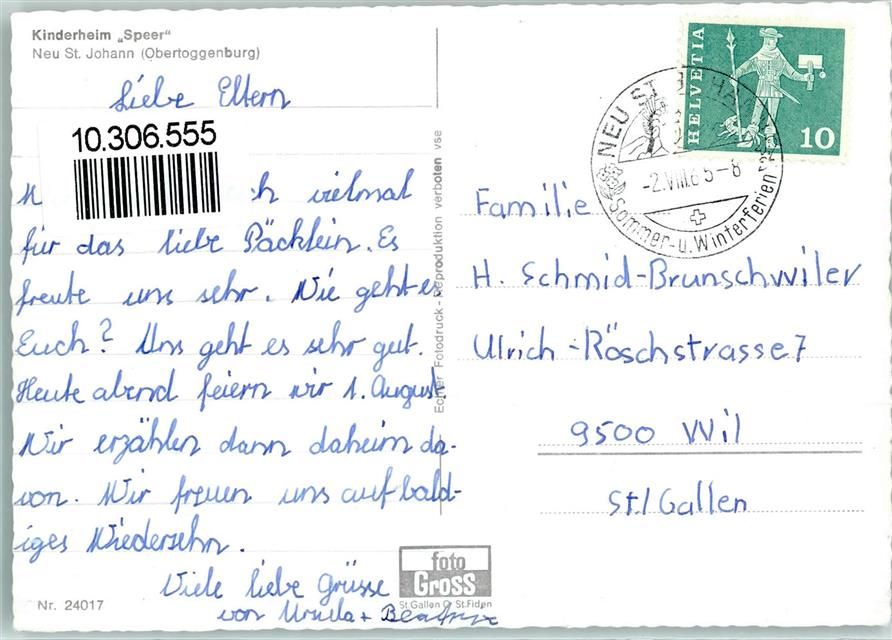 Kinderheim „Speer"
Neu St. Johann (Obertoggenburg)
Liebe Eltern
10.306.555
vielmal
für das liebe Päcklein. Es
freute uns sehr. Wie geht es
Euch? Uns geht es sehr gut.
Heute abend feiern wir 1. August.
Wir erzählen dann daheim da-
von. Wir freuen uns auf bald-
iges Wiedersehn.
Viele liebe Grüsse
von Ursula + Beatrix
Nr. 24017
Echter Fotodruck - Reproduktion verboten vse
foto
Gross
St. Gallen O. St. Fiden
HELVETIA
10
NEU ST. JOHANN
-2.VIII.65-8
Sommer- u. Winterferien
Familie
H. Schmid-Brunschwiler
Ulrich-Röschstrasse 7
9500 Wil
St./Gallen